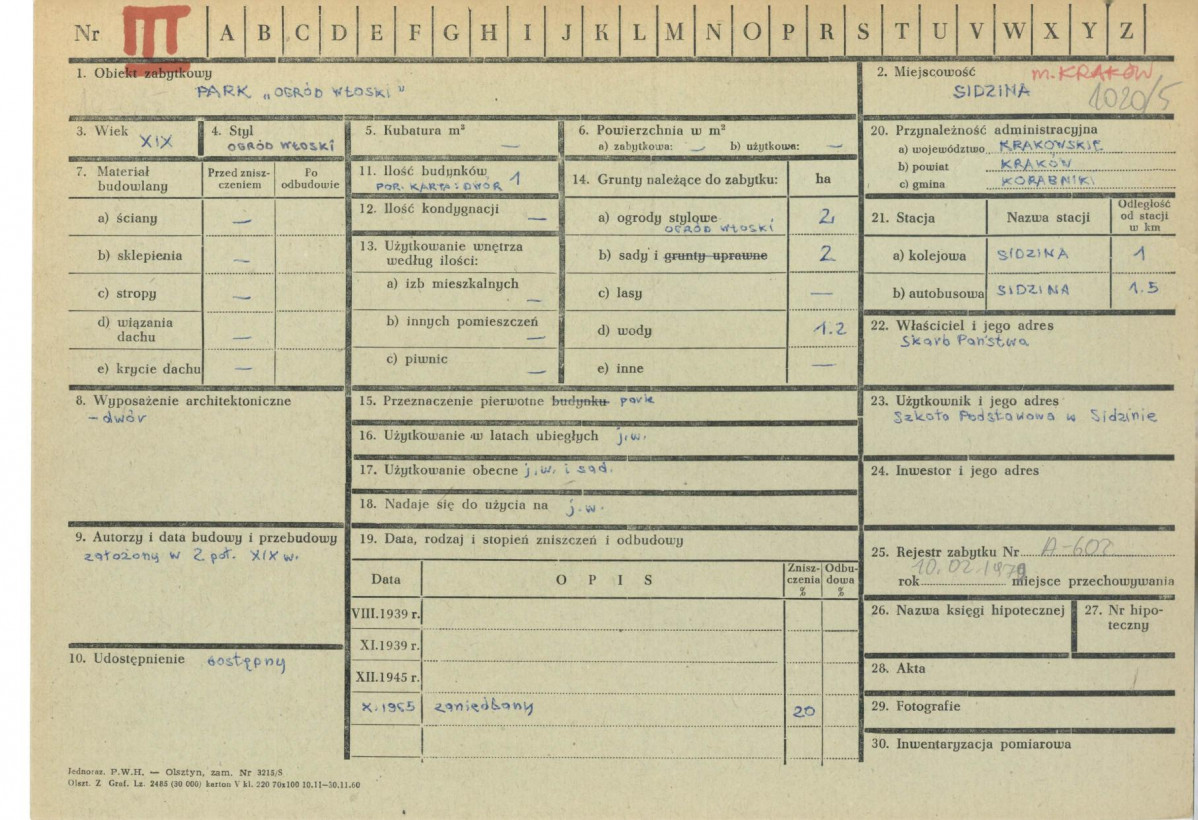 Nr III A B C D E F G H I J K L M N O P R S T U V W X Y Z
1. Obiekt zabytkowy
PARK „OGRÓD WŁOSKI"
2. Miejscowość
m. KRAKÓW
SIDZINA
1020/5
3. Wiek
XIX
4. Styl
OGRÓD WŁOSKI
5. Kubatura m³
—
6. Powierzchnia w m²
a) zabytkowa: — b) użytkowa: —
20. Przynależność administracyjna
a) województwo KRAKOWSKIE
b) powiat KRAKÓW
c) gmina KORABNIKI
7. Materiał budowlany
Przed znisz-
czeniem
Po
odbudowie
a) ściany —
b) sklepienia —
c) stropy —
d) wiązania
dachu —
e) krycie dachu —
11. Ilość budynków 1
POR. KARTA: DWÓR
12. Ilość kondygnacji —
13. Użytkowanie wnętrza
według ilości:
a) izb mieszkalnych —
b) innych pomieszczeń —
c) piwnic —
14. Grunty należące do zabytku: ha
a) ogrody stylowe 2,
OGRÓD WŁOSKI
b) sady i grunty uprawne 2
c) lasy —
d) wody 1.2
e) inne —
21. Stacja Nazwa stacji
Odległość
od stacji
w km
a) kolejowa SIDZINA 1
b) autobusowa SIDZINA 1.5
22. Właściciel i jego adres
Skarb Państwa
8. Wyposażenie architektoniczne
- dwór
15. Przeznaczenie pierwotne budynku park
16. Użytkowanie w latach ubiegłych j.w.
17. Użytkowanie obecne j.w. i sad.
18. Nadaje się do użycia na j.w.
23. Użytkownik i jego adres
Szkoła Podstawowa w Sidzinie
24. Inwestor i jego adres
9. Autorzy i data budowy i przebudowy
założony w 2 poł. XIX w.
19. Data, rodzaj i stopień zniszczeń i odbudowy
Data OPIS
Znisz-
czenia
%
Odbu-
dowa
%
VIII.1939 r.
XI.1939 r.
XII.1945 r.
X.1965 zaniedbany 20
25. Rejestr zabytku Nr A-602
10.02.1979
rok miejsce przechowywania
26. Nazwa księgi hipotecznej
27. Nr hipo-
teczny
10. Udostępnienie dostępny
28. Akta
29. Fotografie
30. Inwentaryzacja pomiarowa
Jednoraz. P.W.H. — Olsztyn, zam. Nr 3215/S
Olszt. Z Graf. Lz. 2485 (30 000) karton V kl. 220 70x100 10.11—30.11.60